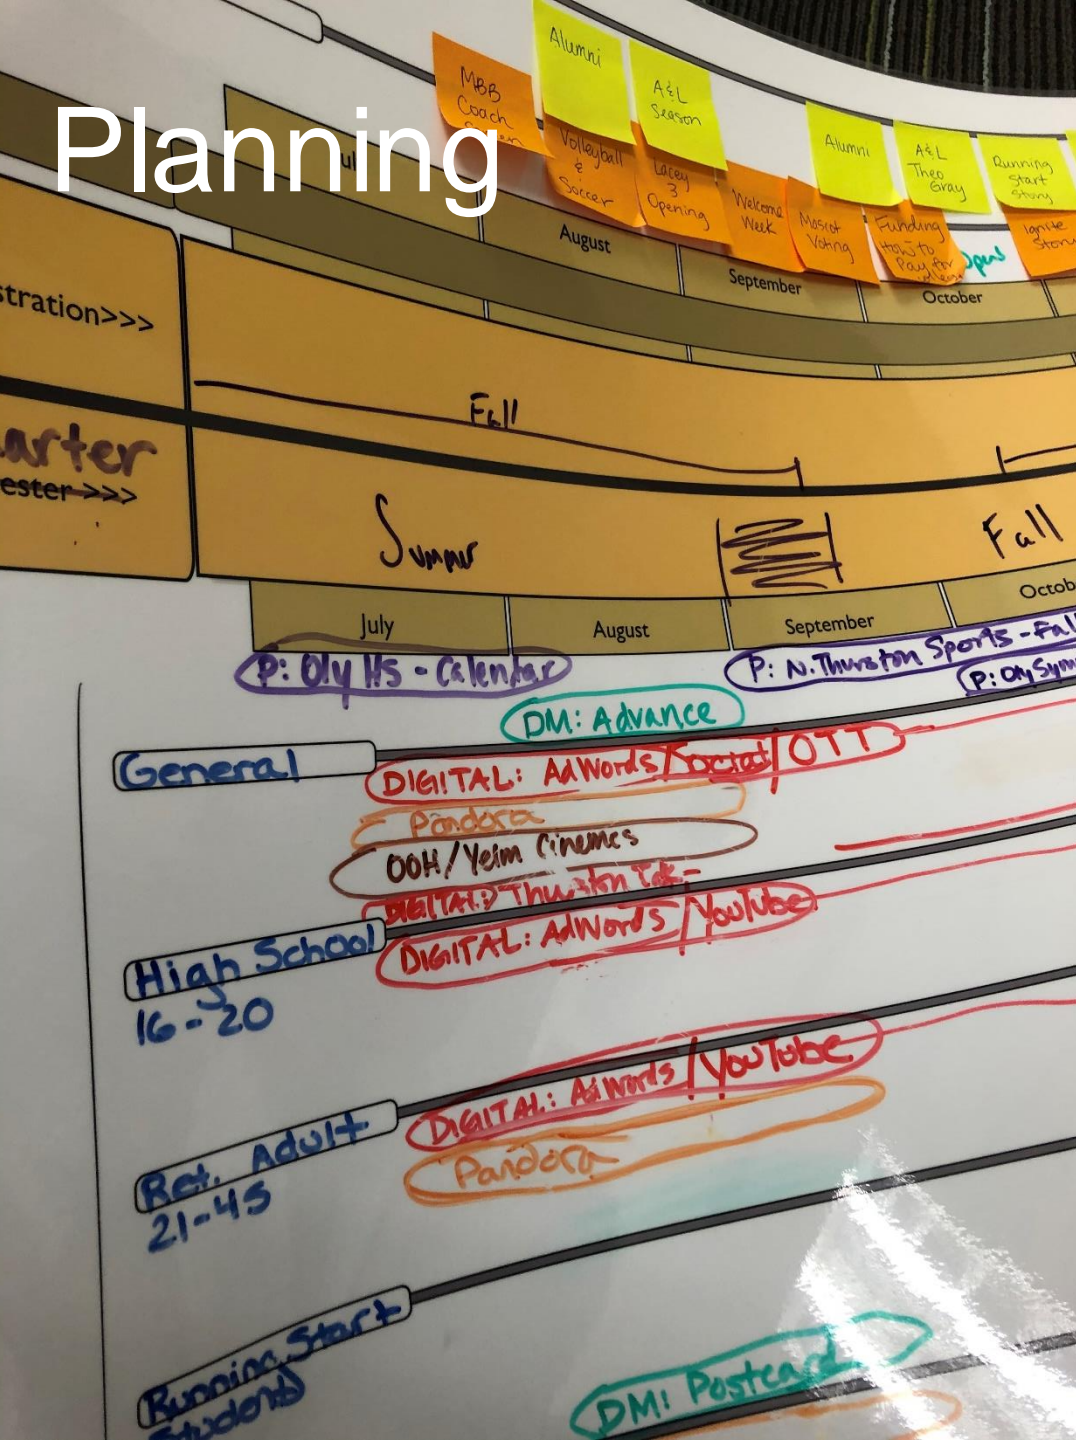 Planning
MBB
Coach
Alumni
A&L
Season
Volleyball
&
Soccer
Lacey
3
Opening
Welcome
Week
Mascot
Voting
Alumni
A&L
Theo
Gray
Running
Start
Story
Funding
How to
Pay for
Ignite
Story
Open
Jul
August
September
October
stration>>>
Fall
arter
ester >>>
Summer
Fall
July
August
September
Octob
P: Oly HS - Calendar
P: N. Thurston Sports - Fall
P: Oly Sym
DM: Advance
General
DIGITAL: AdWords/Social/OTT
Pandora
OOH/Yelm Cinemas
DIGITAL: Thurston Talk-
High School
DIGITAL: AdWords/YouTube
16-20
DIGITAL: AdWords/YouTube
Ret. Adult
Pandora
21-45
Running Start
Students
DM: Postcard